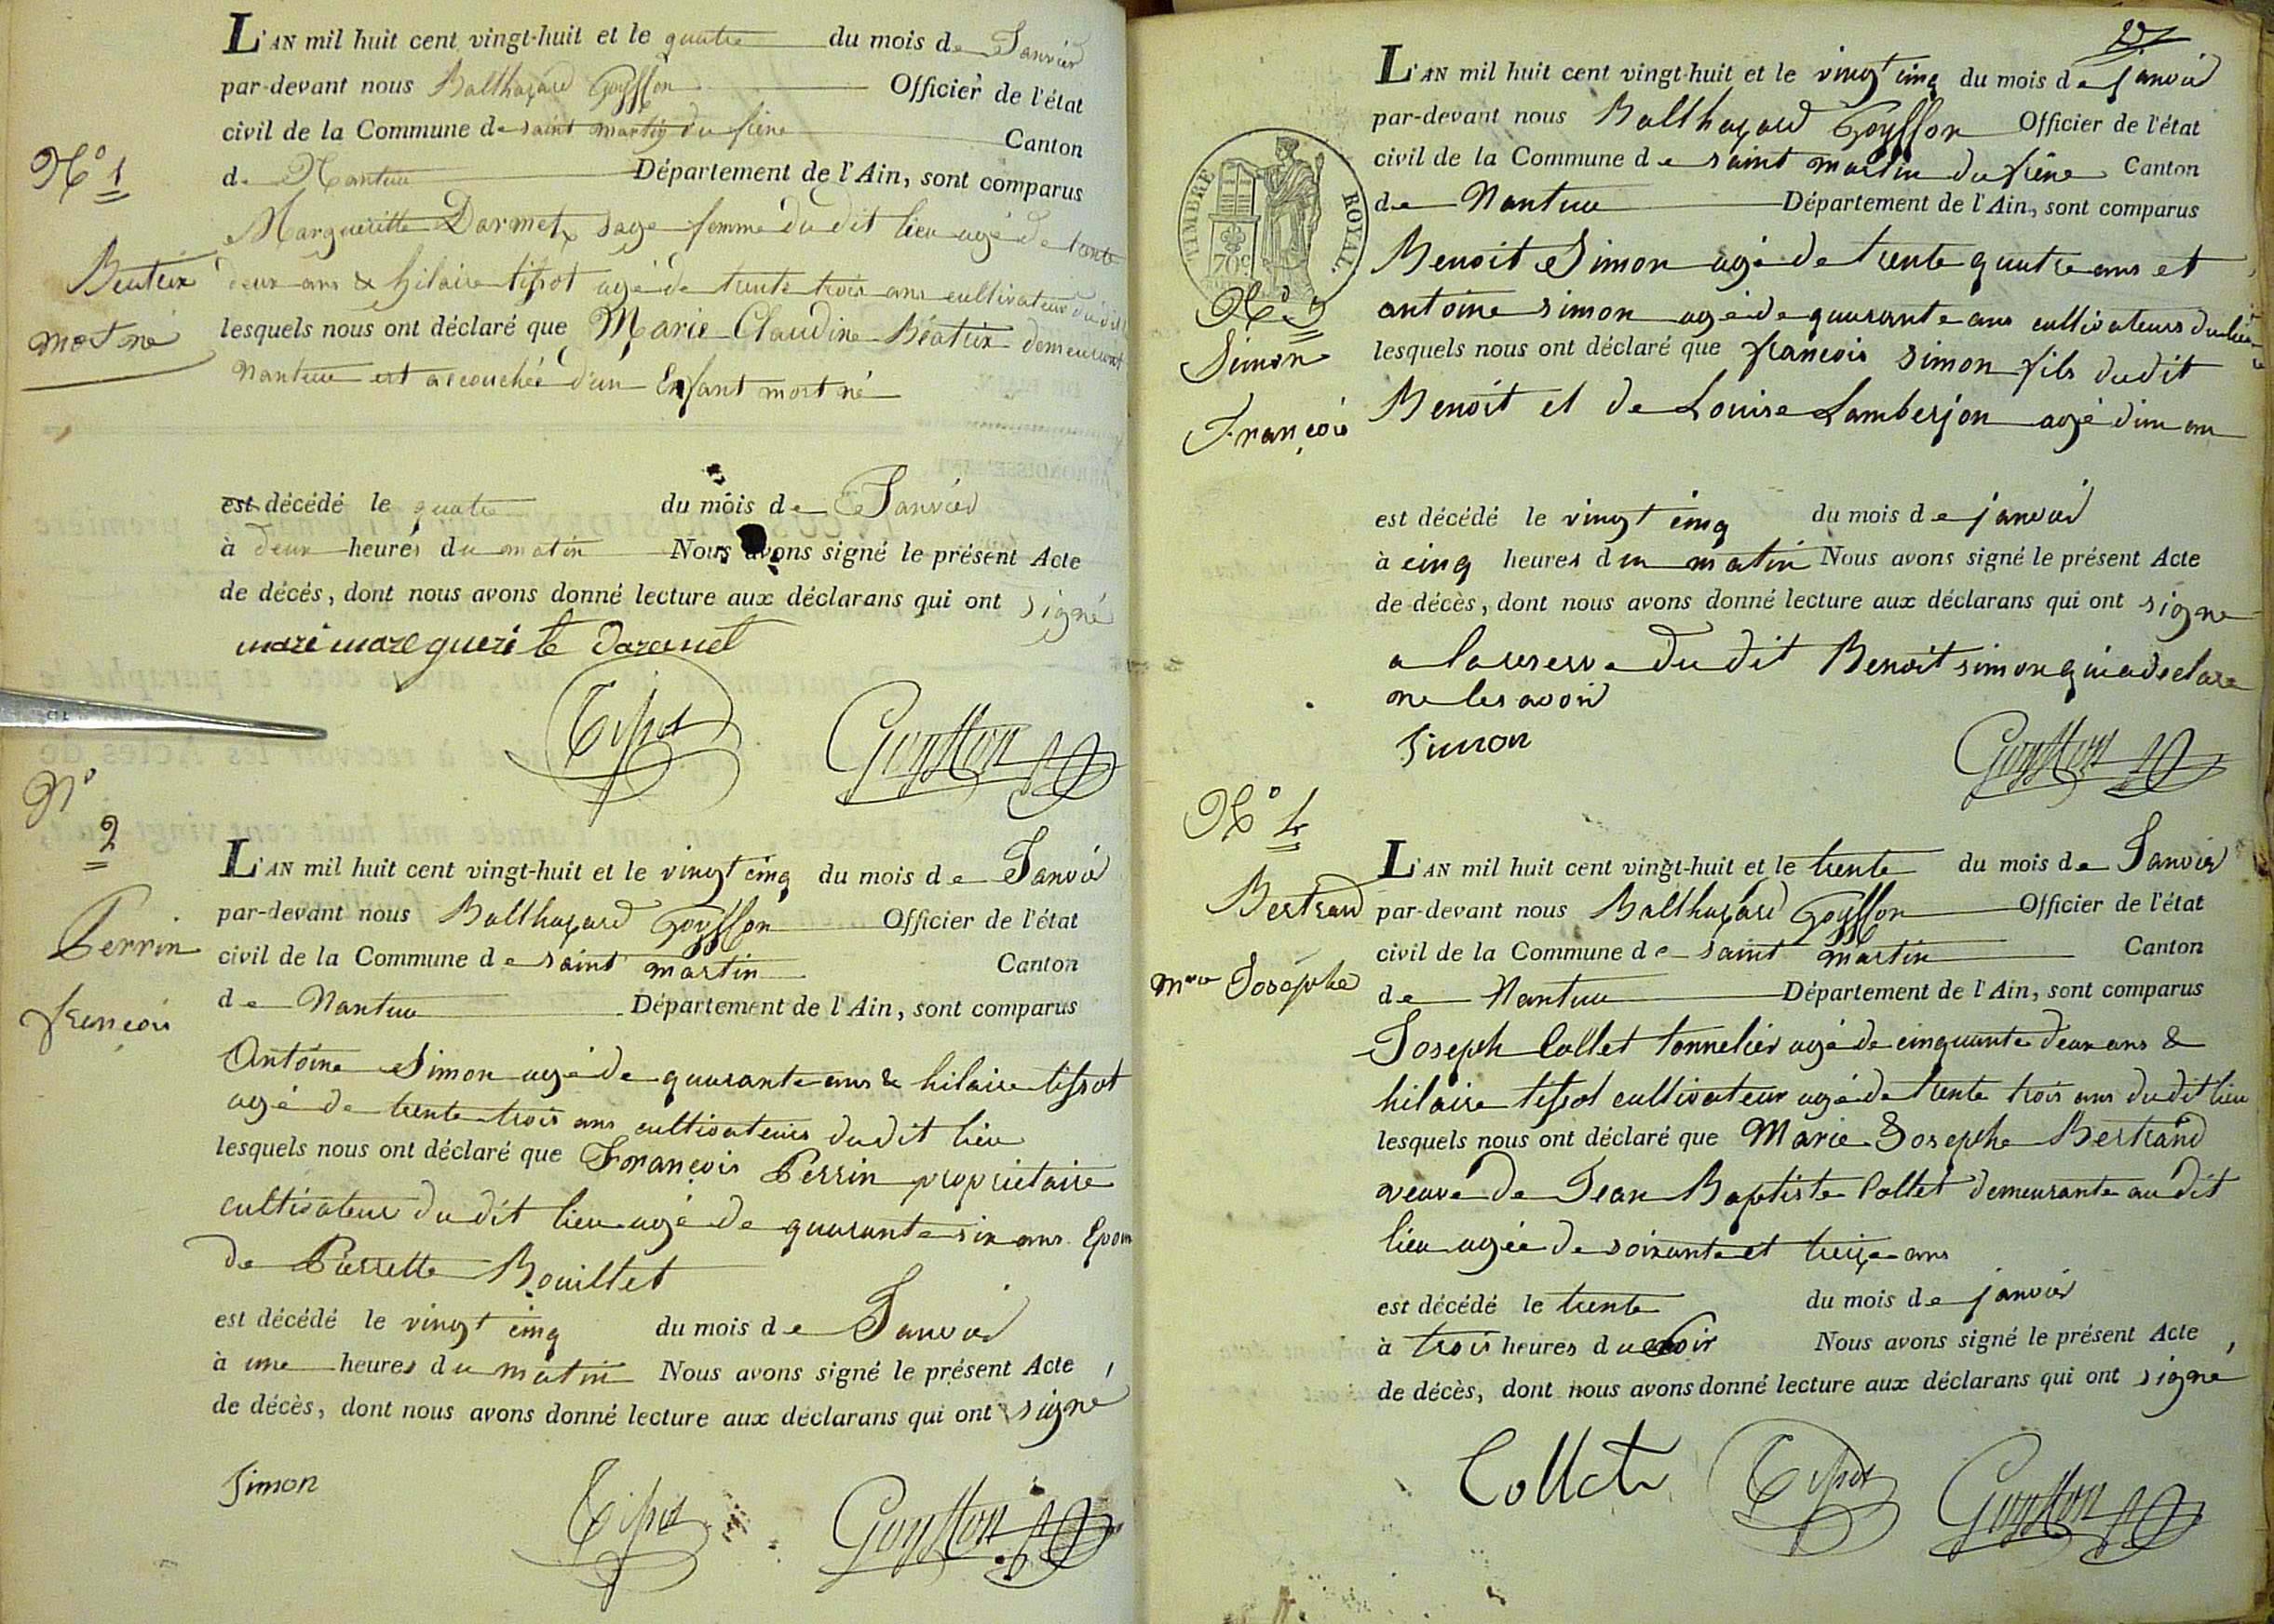 L'AN mil huit cent vingt-huit et le quatre du mois de Janvier
par-devant nous Balthazard Goyffon Officier de l'état
civil de la Commune de saint martin du frêne Canton
de Nantua Département de l'Ain, sont comparus
N° 1
Margueritte Darmet sage femme du dit lieu agé de trente
Béatrix
deux ans & hilaire tissot agé de trente trois ans cultivateur du dit
mort né
lesquels nous ont déclaré que Marie Claudine Béatrix demeurant
Nantua est accouchée d'un Enfant mort né
est décédé le quatre du mois de Janvier
à deux heures du matin Nous avons signé le présent Acte
de décés, dont nous avons donné lecture aux déclarans qui ont signé
mari mare gueri te daremet
Tissot Goyffon
N° 2
Perrin
françois
L'AN mil huit cent vingt-huit et le vingt cinq du mois de Janvier
par-devant nous Balthazard Goyffon Officier de l'état
civil de la Commune de saint martin Canton
de Nantua Département de l'Ain, sont comparus
Antoine Simon agé de quarante ans & hilaire tissot
agé de trente trois ans cultivateurs du dit lieu
lesquels nous ont déclaré que François Perrin proprietaire
cultivateur du dit lieu agé de quarante six ans Epoux
de Pierrette Bouillet
est décédé le vingt cinq du mois de Janvier
à une heures du matin Nous avons signé le présent Acte
de décès, dont nous avons donné lecture aux déclarans qui ont signé
Simon Tissot Goyffon
L'AN mil huit cent vingt-huit et le vingt cinq du mois de janvier
par-devant nous Balthazard Goyffon Officier de l'état
civil de la Commune de saint martin du frêne Canton
de Nantua Département de l'Ain, sont comparus
TIMBRE ROYAL
70c
N° 3
Simon
François
Benoit Simon agé de trente quatre ans et
antoine simon agé de quarante ans cultivateurs du lieu
lesquels nous ont déclaré que françois simon fils dudit
Benoit et de Louise Lamberjon agé d'un an
est décédé le vingt cinq du mois de janvier
à cinq heures du matin Nous avons signé le présent Acte
de décès, dont nous avons donné lecture aux déclarans qui ont signé
a la reserve du dit Benoit simon qui a declare
ne les avoir
Simon Goyffon
N° 4
Bertrand
Marie Josephe
L'AN mil huit cent vingt-huit et le trente du mois de Janvier
par-devant nous Balthazard Goyffon Officier de l'état
civil de la Commune de saint martin Canton
de Nantua Département de l'Ain, sont comparus
Joseph Collet tonnelier agé de cinquante deux ans &
hilaire tissot cultivateur agé de trente trois ans du dit lieu
lesquels nous ont déclaré que Marie Josephe Bertrand
veuve de Jean Baptiste Collet demeurante au dit
lieu agée de soixante et treize ans
est décédé le trente du mois de janvier
à trois heures du soir Nous avons signé le présent Acte
de décès, dont nous avons donné lecture aux déclarans qui ont signé
Collet Tissot Goyffon